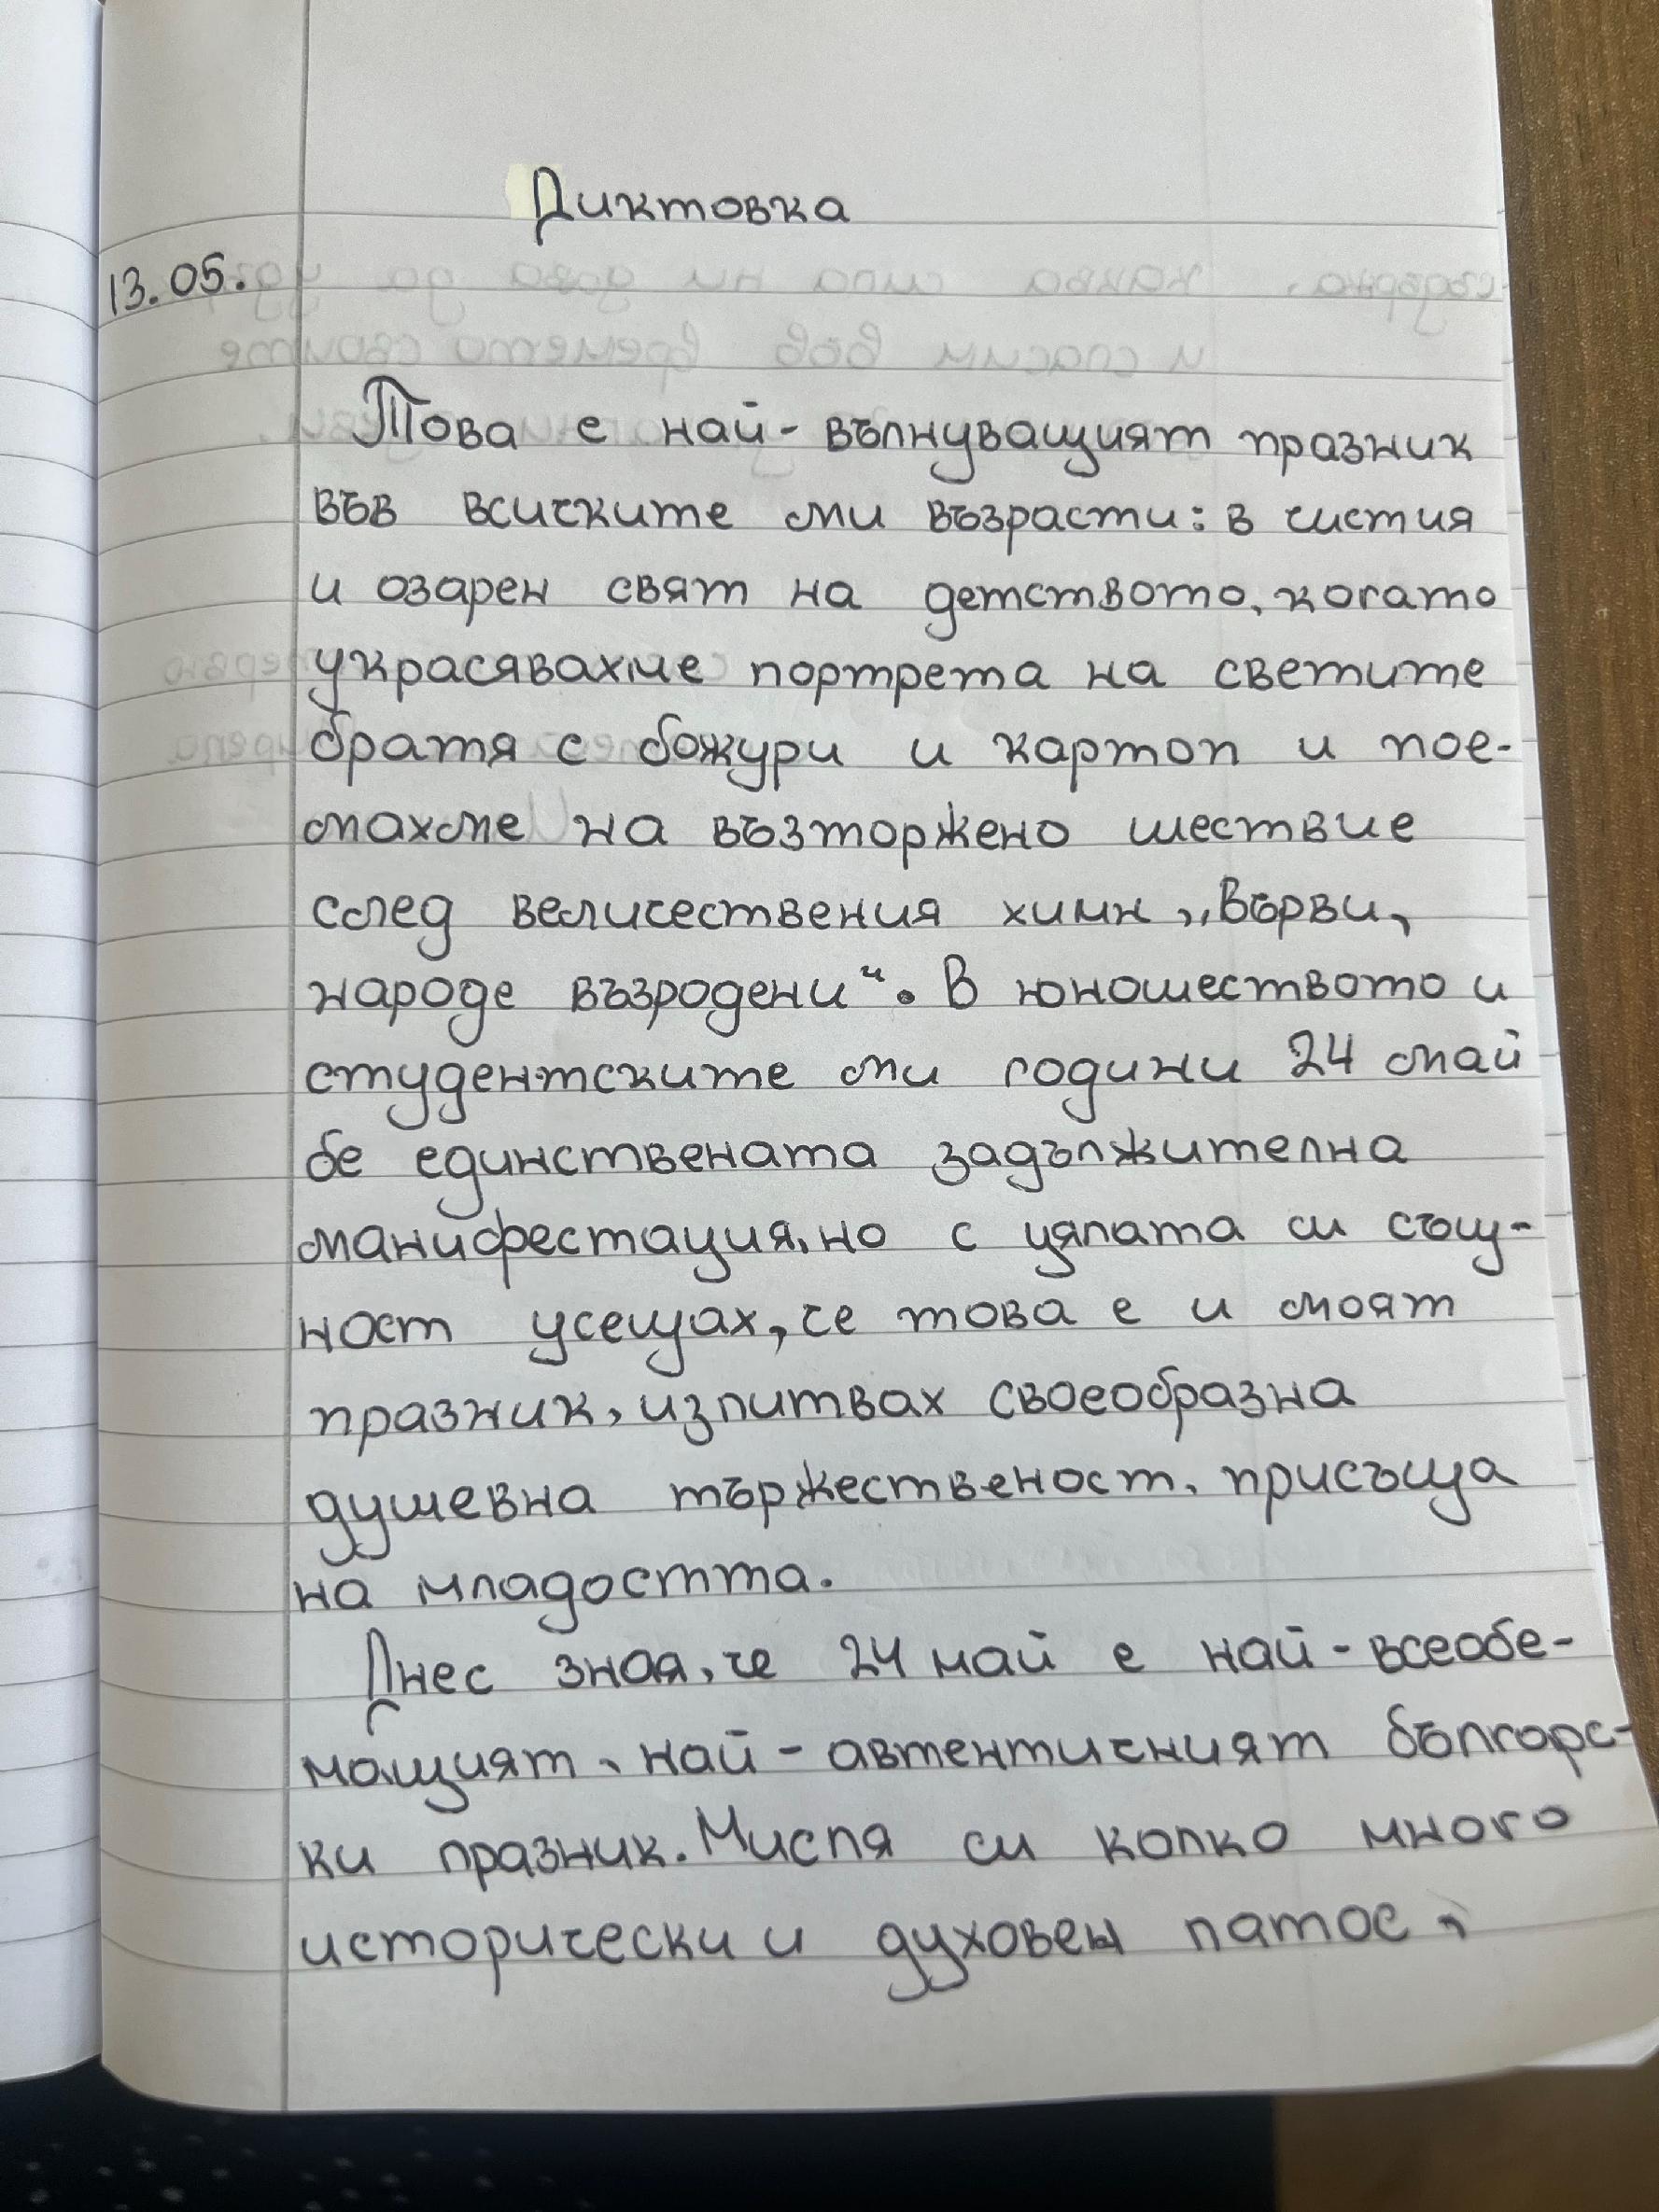 Диктовка
13.05.
Това е най-вълнуващият празник
във всичките ми възрасти: в чистия
и озарен свят на детството, когато
украсявахме портрета на светите
братя с божури и картоп и пое-
махме на възторжено шествие
след величествения химн „Върви,
народе възродени“. В юношеството и
студентските ми години 24 май
бе единствената задължителна
манифестация, но с цялата си същ-
ност усещах, че това е и моят
празник, изпитвах своеобразна
душевна тържественост, присъща
на младостта.
Днес зная, че 24 май е най-всеобе-
мащият, най-автентичният българс-
ки празник. Мисля си колко много
исторически и духовен патос,